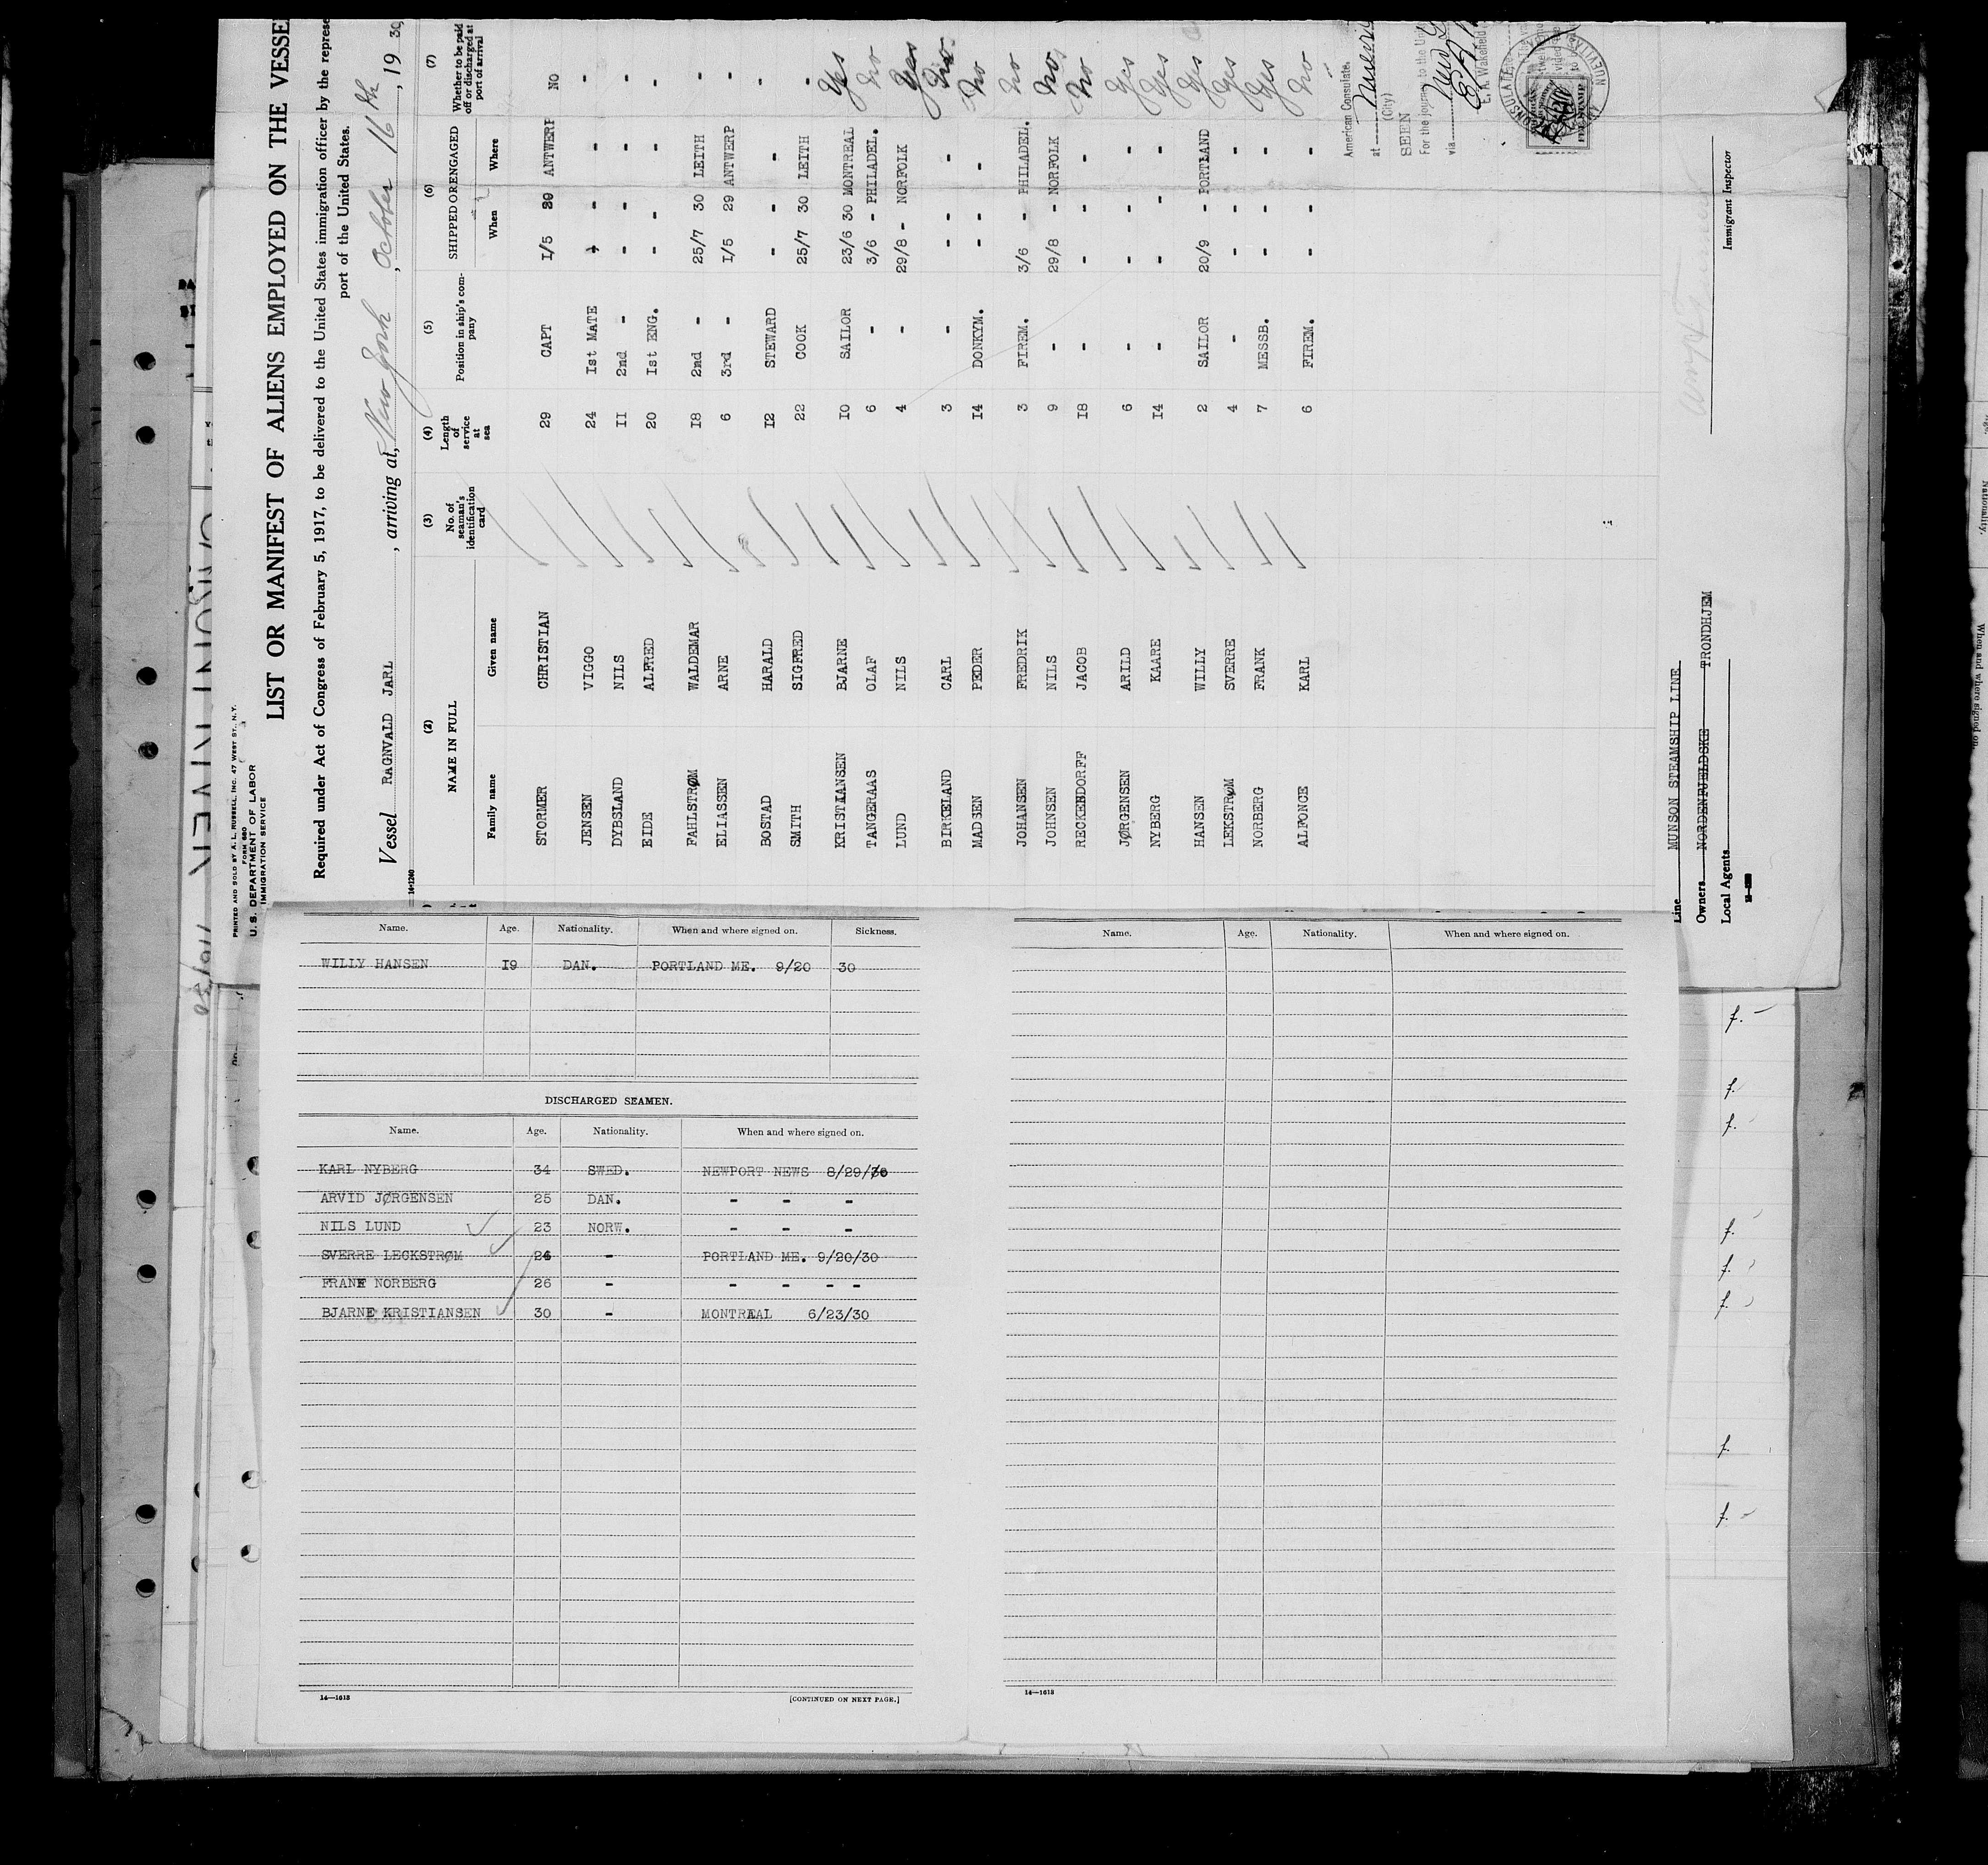 PRINTED AND SOLD BY A. L. RUSSELL, INC. 47 WEST ST., N.Y.
FORM 680
U. S. DEPARTMENT OF LABOR
IMMIGRATION SERVICE
LIST OR MANIFEST OF ALIENS EMPLOYED ON THE VESSE
Required under Act of Congress of February 5, 1917, to be delivered to the United States immigration officer by the represe
port of the United States.
Vessel RAGNVALD JARL, arriving at, New York, October 16th, 1930,
14-1240
(2) (3) (4) (5) (6) (7)
NAME IN FULL No. of seaman's identification card Length of service at sea Position in ship's company SHIPPED OR ENGAGED Whether to be paid off or discharged at port of arrival
Family name Given name When Where
STORMER CHRISTIAN 29 CAPT 1/5 29 ANTWERP NO
JENSEN VIGGO 24 1st MATE - - - -
DYBSLAND NILS 11 2nd - - - - -
EIDE ALFRED 20 1st ENG. - - - -
FAHLSTRØM WALDEMAR 18 2nd - 25/7 30 LEITH -
ELIASSEN ARNE 6 3rd - 1/5 29 ANTWERP -
BOSTAD HARALD 12 STEWARD - - - -
SMITH SIGFRED 22 COOK 25/7 30 LEITH -
KRISTIANSEN BJARNE 10 SAILOR 23/6 30 MONTREAL Yes
TANGERAAS OLAF 6 - 3/6 - PHILADEL. No
LUND NILS 4 - 29/8 - NORFOLK Yes
BIRKELAND CARL 3 - - - - No
MADSEN PEDER 14 DONKYM. - - - No
JOHANSEN FREDRIK 3 FIREM. 3/6 - PHILADEL. No
JOHNSEN NILS 9 - 29/8 - NORFOLK No
RECKENDORFF JACOB 18 - - - - No
JØRGENSEN ARILD 6 - - - - Yes
NYBERG KAARE 14 - - - - Yes
HANSEN WILLY 2 SAILOR 20/9 - PORTLAND Yes
LEKSTRØM SVERRE 4 - - - - Yes
NORBERG FRANK 7 MESSB. - - - Yes
ALFONCE KARL 6 FIREM. - - - No
American Consulate.
at
(City)
SEEN
For the journey to the Unit
via
E. A. Wakefield
Line MUNSON STEAMSHIP LINE
Owners NORDENFJELDSKE TRONDHJEM
Local Agents
Immigrant Inspector
Name. Age. Nationality. When and where signed on. Sickness.
WILLY HANSEN 19 DAN. PORTLAND ME. 9/20 30
DISCHARGED SEAMEN.
Name. Age. Nationality. When and where signed on.
KARL NYBERG 34 SWED. NEWPORT NEWS 8/29/30
ARVID JØRGENSEN 25 DAN. - - -
NILS LUND 23 NORW. - - -
SVERRE LECKSTRØM 24 - PORTLAND ME. 9/20/30
FRANK NORBERG 26 - - - - -
BJARNE KRISTIANSEN 30 - MONTREAL 6/23/30
14—1613 [CONTINUED ON NEXT PAGE.]
Name. Age. Nationality. When and where signed on.
14—1613
f.
f.
f.
f.
f.
f.
f.
f.
Nationality.
When and where signed on.